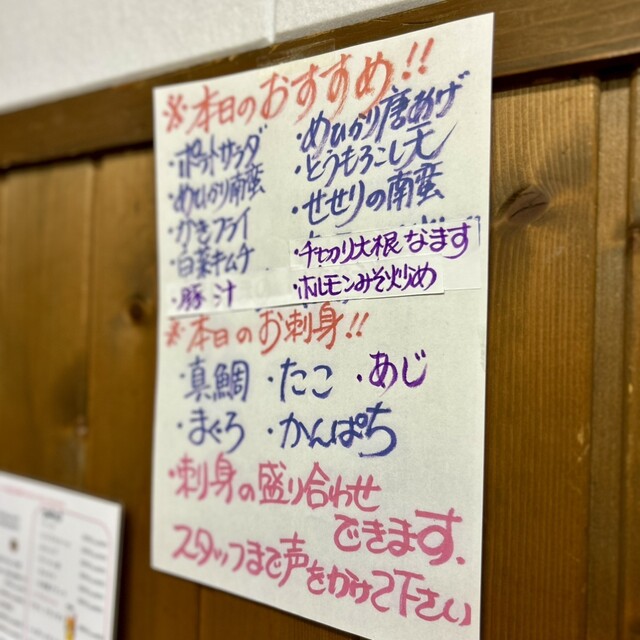 ※本日のおすすめ!!
・ポテトサラダ
・めひかり南蛮
・かきフライ
・白菜キムチ
・豚汁
・めひかり唐あげ
・とうもろこし天
・せせりの南蛮
・チギリ大根なます
・ホルモンみそ炒め
※本日のお刺身!!
・真鯛 ・たこ ・あじ
・まぐろ ・かんぱち
・刺身の盛り合わせ
できます.
スタッフまで声をかけて下さい